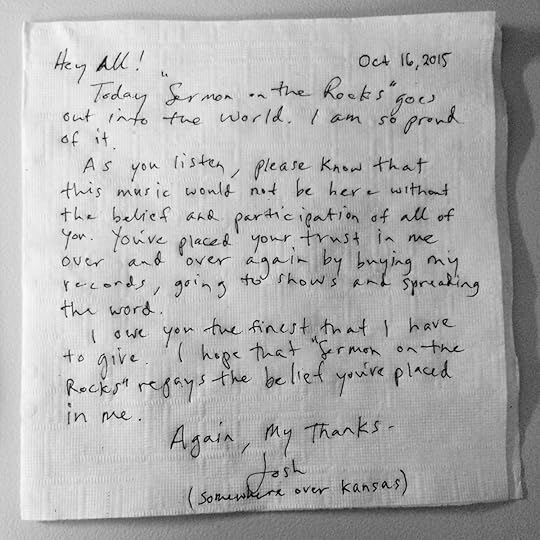 Hey All! Oct 16, 2015
Today "Sermon on the Rocks" goes
out into the world. I am so proud
of it.
As you listen, please know that
this music would not be here without
the belief and participation of all of
you. You've placed your trust in me
over and over again by buying my
records, going to shows and spreading
the word.
I owe you the finest that I have
to give. I hope that "Sermon on the
Rocks" repays the belief you've placed
in me.
Again, My Thanks-
Josh
(somewhere over Kansas)